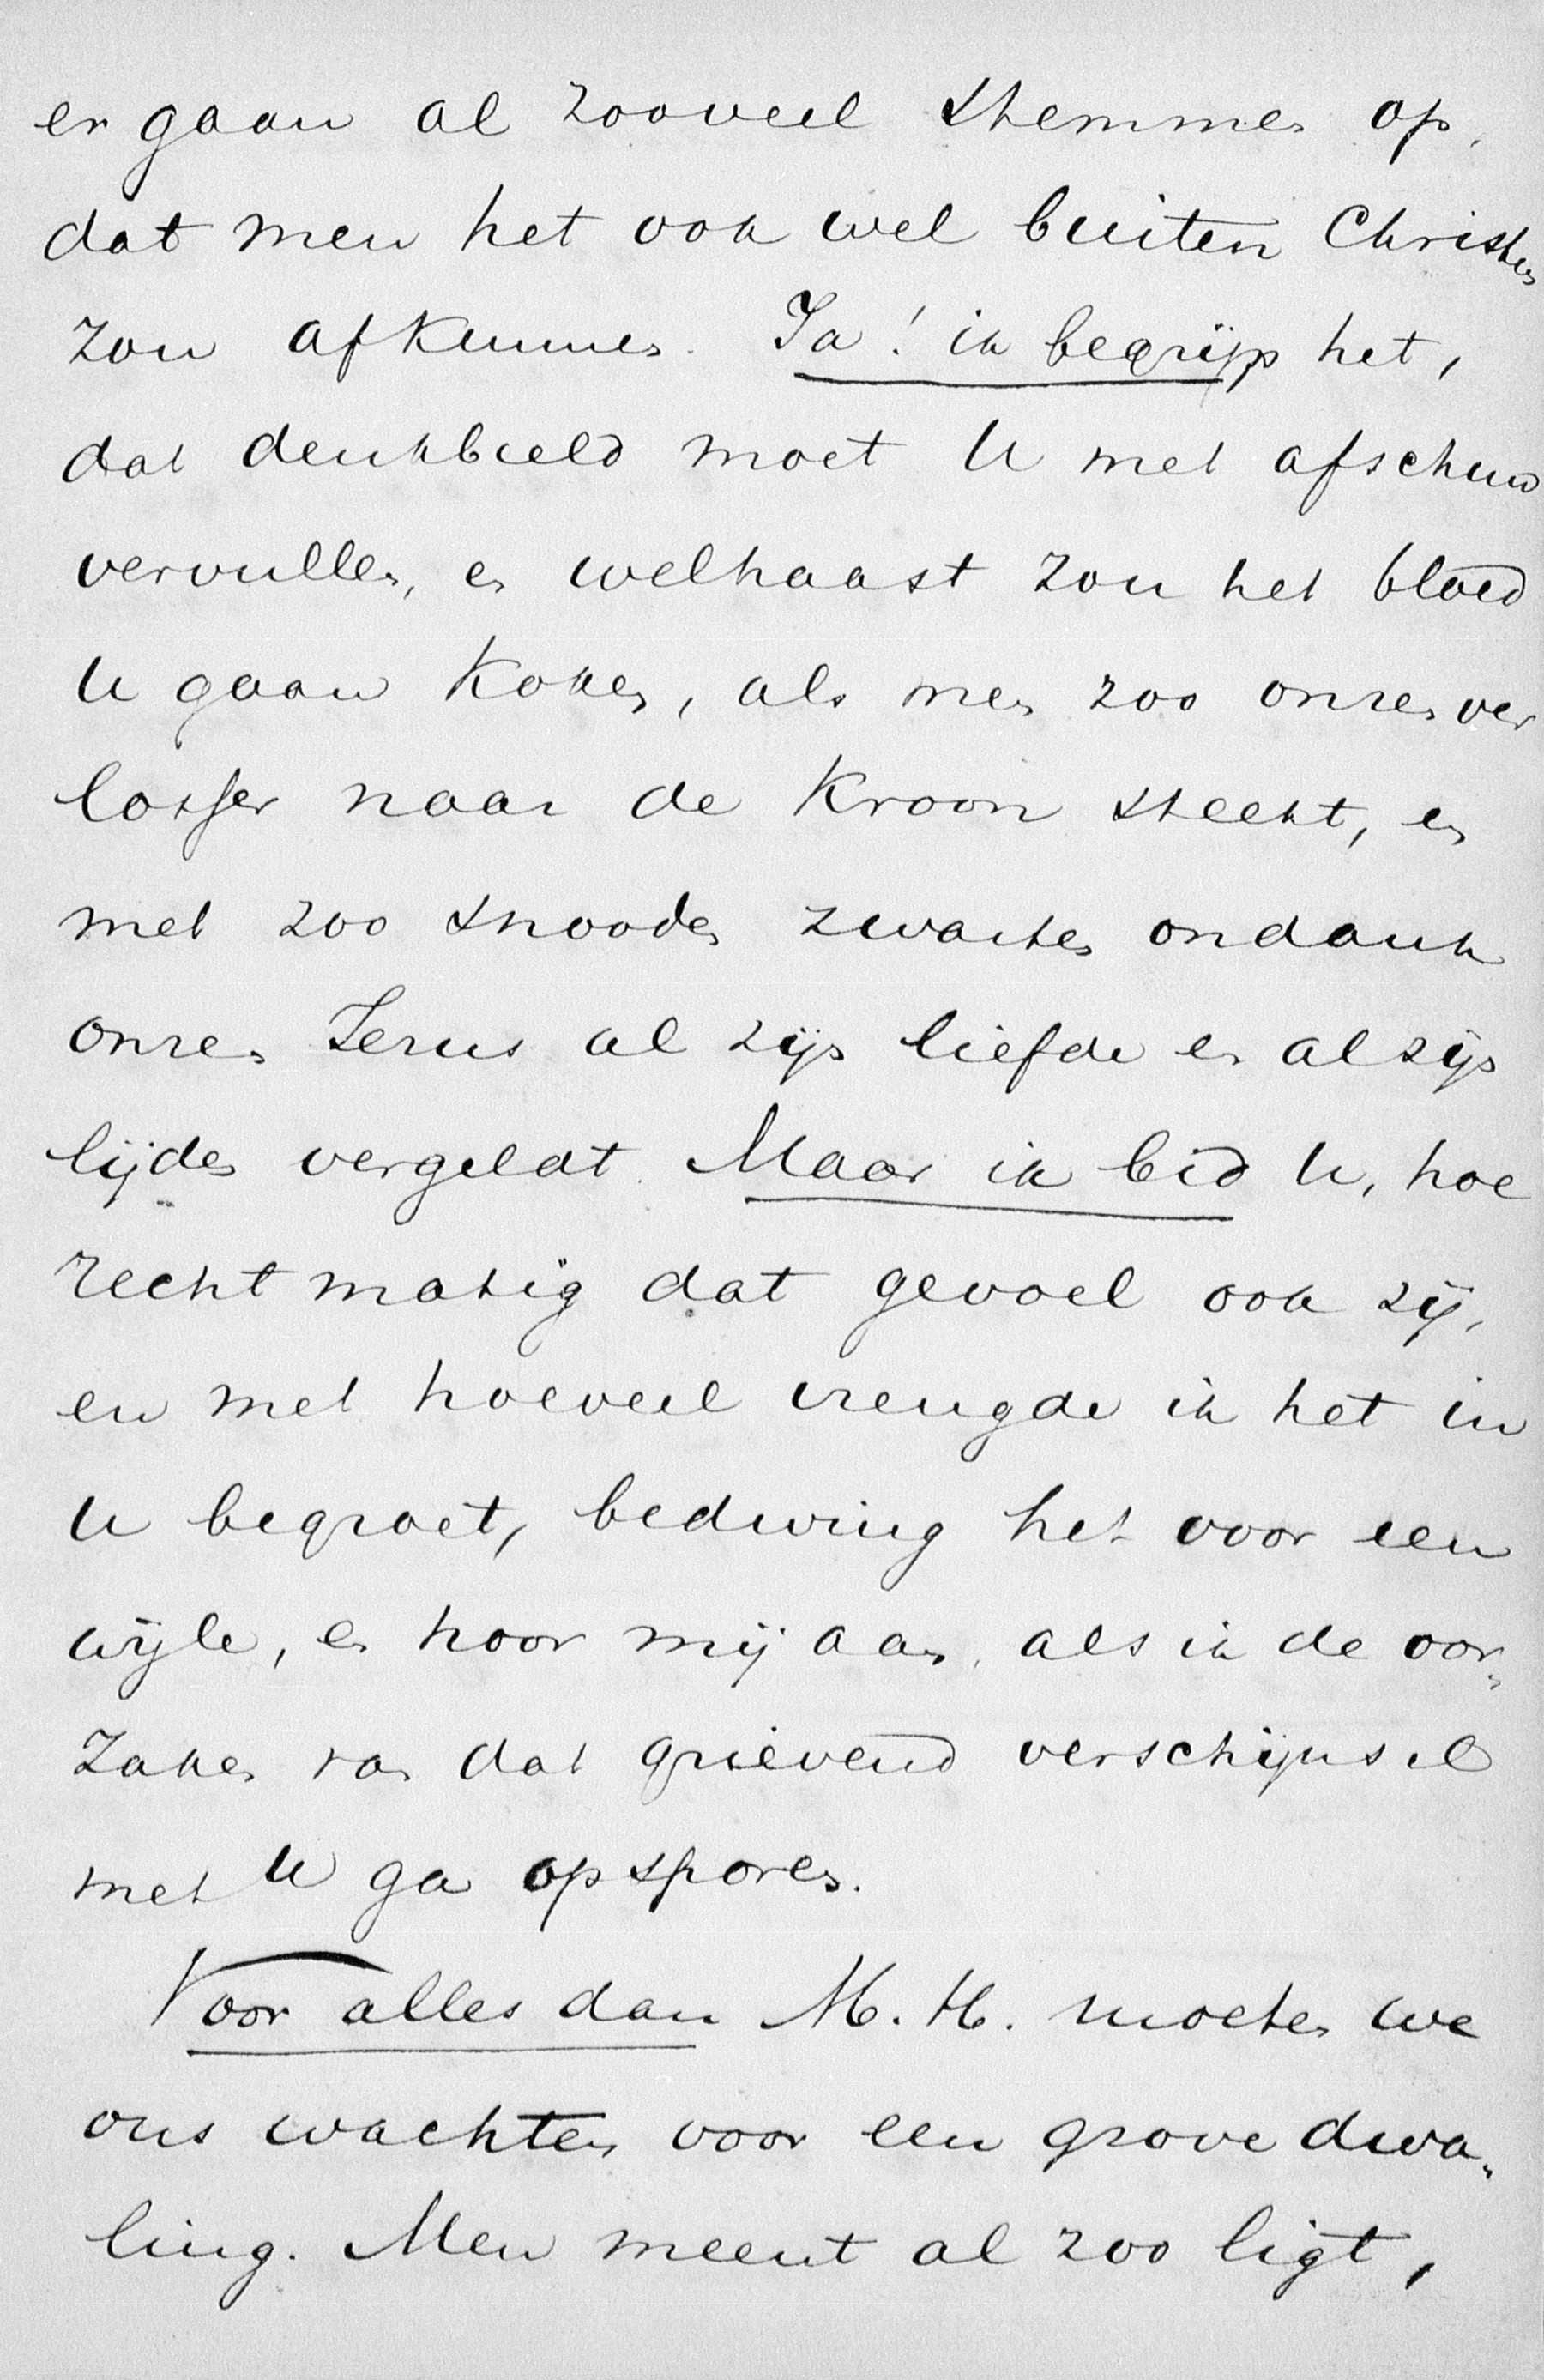 er gaan al zooveel stemmen op,
dat men het ook wel buiten Christus
zou afkunnen. Ja! ik begrijp het,
dat denkbeeld moet U met afschuw
vervullen, en welhaast zou het bloed
U gaan koken, als men zoo onzen ver
losser naar de kroon steekt, en
met zoo snooden zwarten ondank
onzen Jezus al zijn liefde en al zijn
lijden vergeldt. Maar ik bid U, hoe
rechtmatig dat gevoel ook zij,
en met hoeveel vreugde ik het in
U begroet, bedwing het voor een
wijle, en hoor mij aan, als ik de oor„
zaken van dat grievend verschijnsel
met U ga opsporen.
Voor alles dan M. H. moeten we
ons wachten voor een grove dwa„
ling. Men meent al zoo ligt,